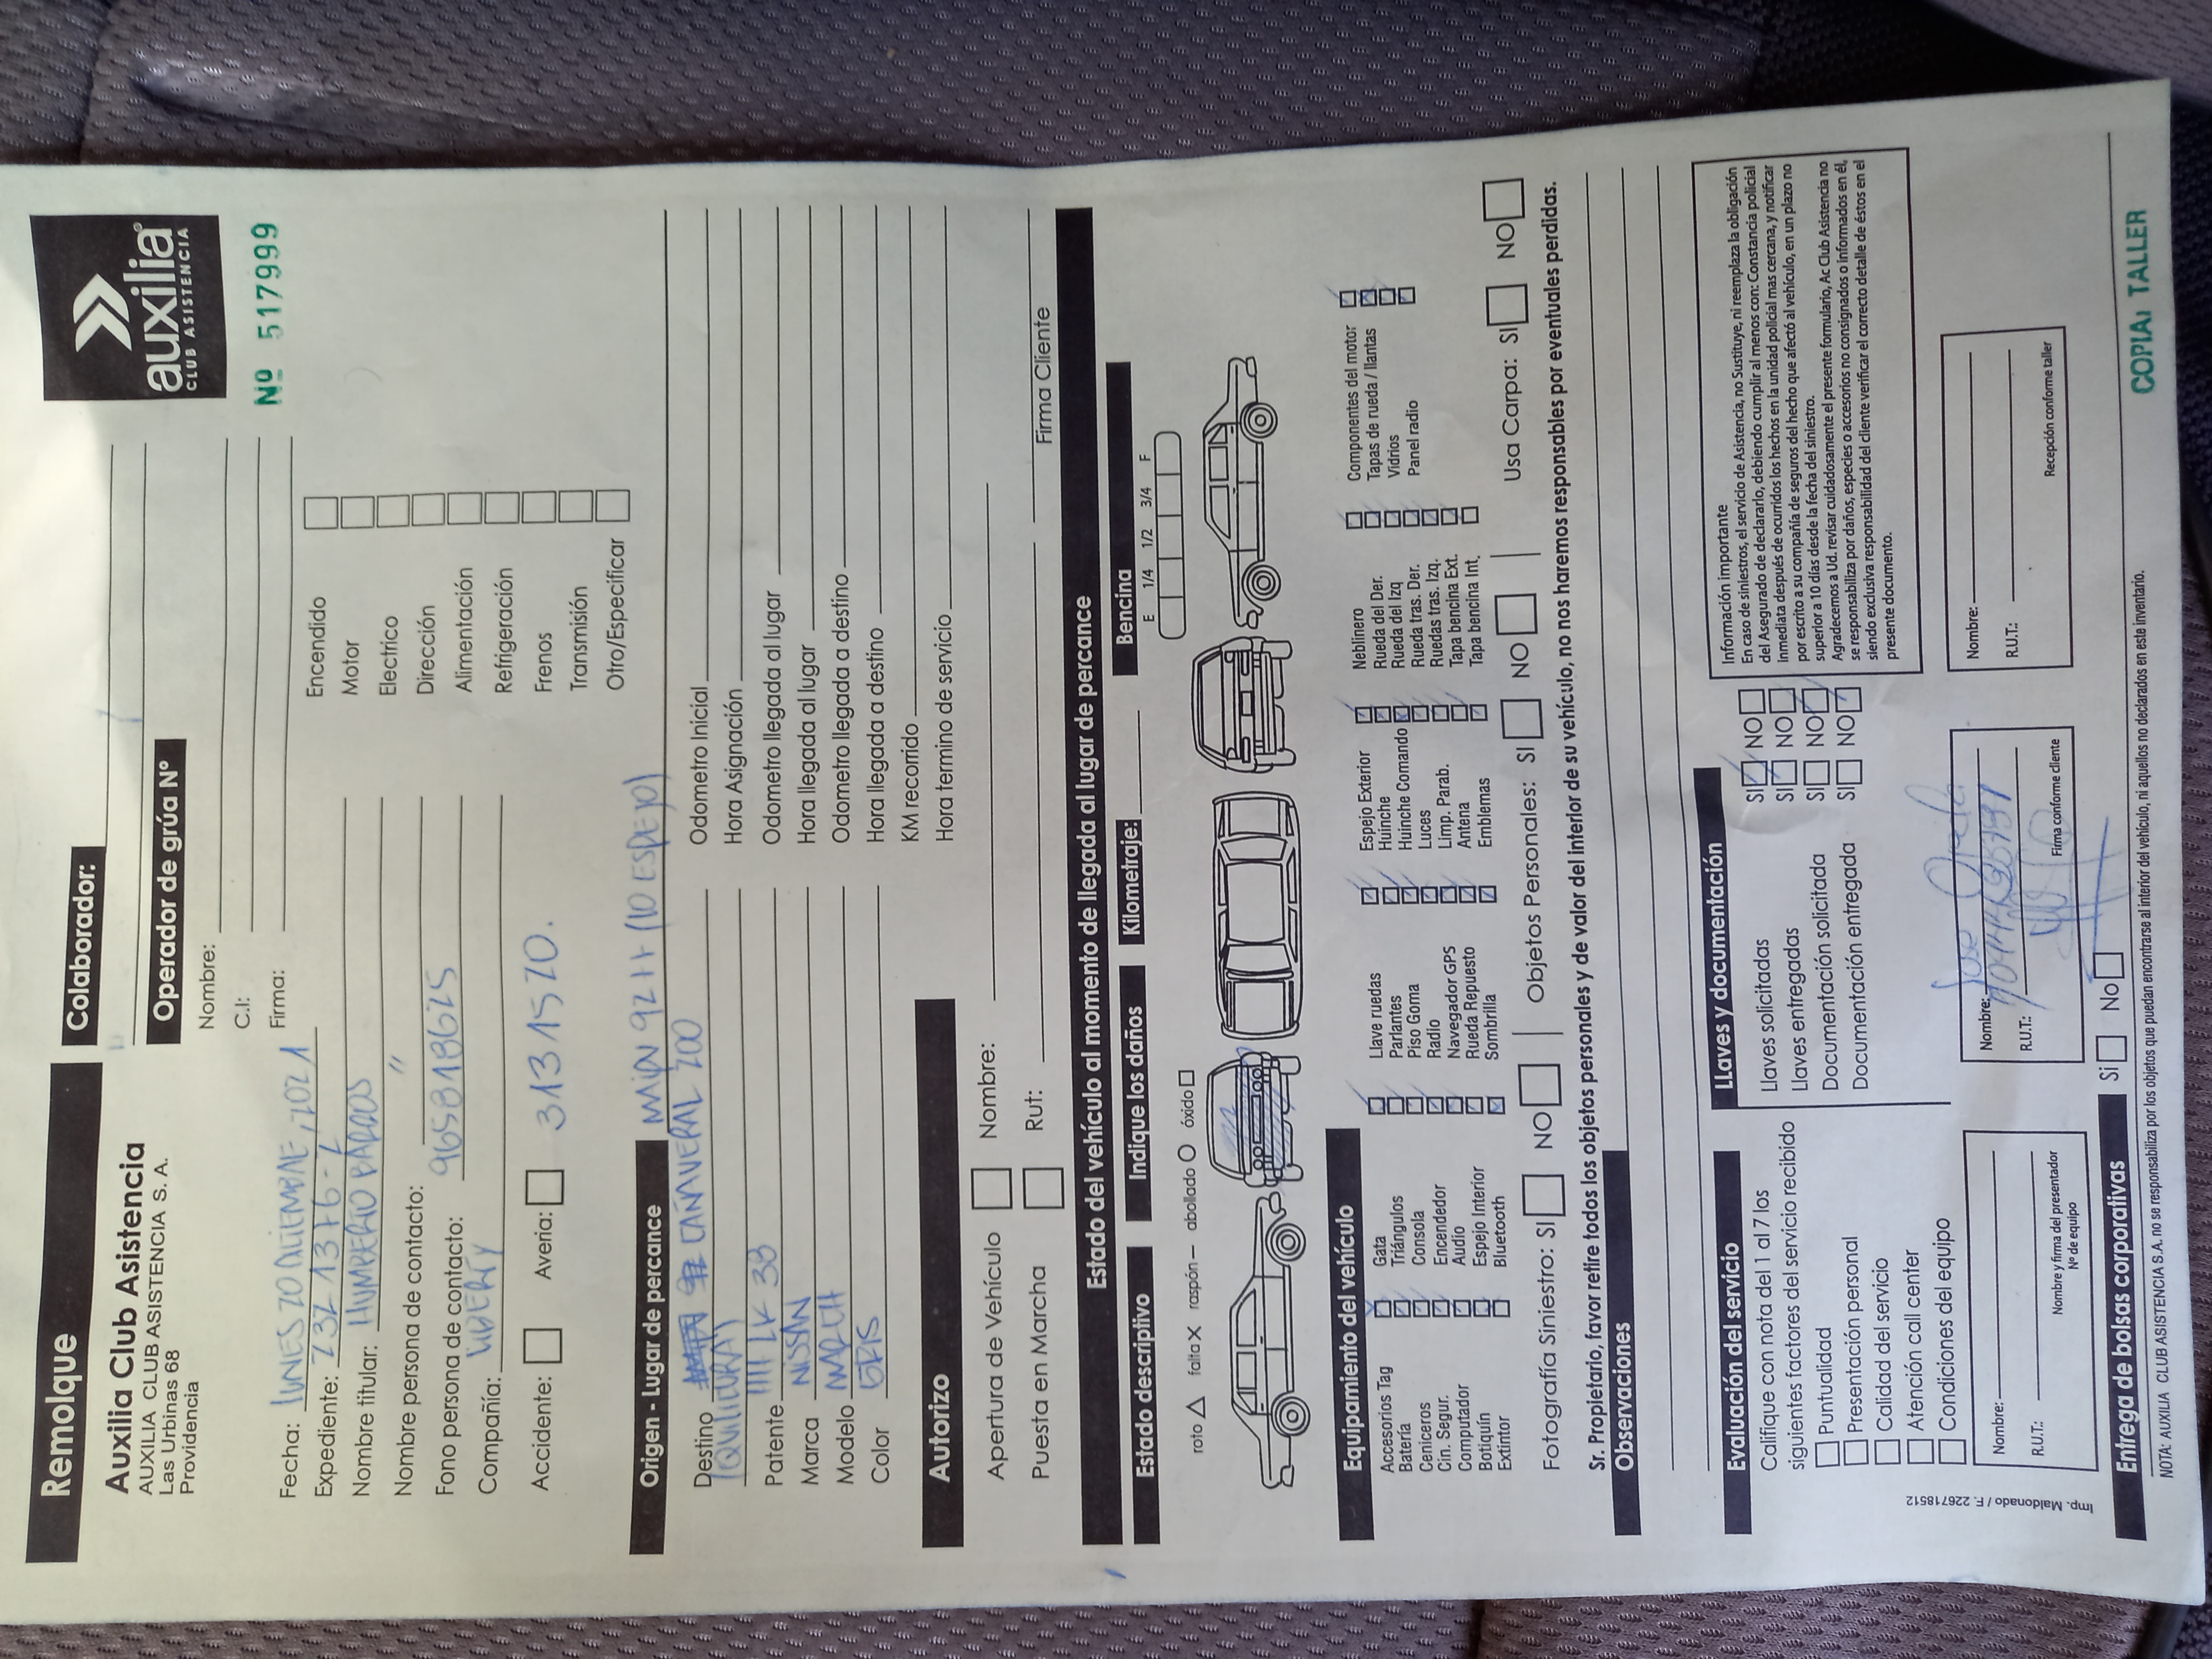 Remolque
Colaborador:
auxilia
CLUB ASISTENCIA
Auxilia Club Asistencia
AUXILIA CLUB ASISTENCIA S. A.
Las Urbinas 68
Providencia
Operador de grúa Nº
Nombre:
C.I:
Firma:
Nº 517999
Fecha: LUNES 20 DICIEMBRE, 2021
Expediente:
Nombre titular: HUMBERTO BARROS
Nombre persona de contacto: "
Fono persona de contacto: 965818625
Compañía: LIBERTY
Accidente: Averia: 3131570.
Encendido
Motor
Electrico
Dirección
Alimentación
Refrigeración
Frenos
Transmisión
Otro/Especificar
Origen - Lugar de percance
Destino CAÑAVERAL 200
(QUILICURA)
Patente
Marca NISSAN
Modelo MARCH
Color GRIS
Odometro Inicial
Hora Asignación
Odometro llegada al lugar
Hora llegada al lugar
Odometro llegada a destino
Hora llegada a destino
KM recorrido
Hora termino de servicio
Autorizo
Apertura de Vehículo Nombre:
Puesta en Marcha Rut:
Firma Cliente
Estado del vehículo al momento de llegada al lugar de percance
Estado descriptivo Indique los daños Kilometraje: Bencina
roto △ falta X raspón – abollado O óxido □
E 1/4 1/2 3/4 F
Equipamiento del vehículo
Accesorios Tag
Batería
Ceniceros
Cin. Segur.
Computador
Botiquín
Extintor
Gata
Triángulos
Consola
Encendedor
Audio
Espejo Interior
Bluetooth
Llave ruedas
Parlantes
Piso Goma
Radio
Navegador GPS
Rueda Repuesto
Sombrilla
Espejo Exterior
Huinche
Huinche Comando
Luces
Limp. Parab.
Antena
Emblemas
Neblinero
Rueda del Der.
Rueda del Izq
Rueda tras. Der.
Ruedas tras. Izq.
Tapa bencina Ext.
Tapa bencina Int.
Componentes del motor
Tapas de rueda / llantas
Vidrios
Panel radio
Fotografía Siniestro: SI NO | Objetos Personales: SI NO | Usa Carpa: SI NO
Sr. Propietario, favor retire todos los objetos personales y de valor del interior de su vehículo, no nos haremos responsables por eventuales perdidas.
Observaciones
Evaluación del servicio
Califique con nota del 1 al 7 los
siguientes factores del servicio recibido
Puntualidad
Presentación personal
Calidad del servicio
Atención call center
Condiciones del equipo
LLaves y documentación
Llaves solicitadas SI NO
Llaves entregadas SI NO
Documentación solicitada SI NO
Documentación entregada SI NO
Información importante
En caso de siniestros, el servicio de Asistencia, no Sustituye, ni reemplaza la obligación
del Asegurado de declararlo, debiendo cumplir al menos con: Constancia policial
inmediata después de ocurridos los hechos en la unidad policial mas cercana, y notificar
por escrito a su compañía de seguros del hecho que afectó al vehículo, en un plazo no
superior a 10 días desde la fecha del siniestro.
Agradecemos a Ud. revisar cuidadosamente el presente formulario, Ac Club Asistencia no
se responsabiliza por daños, especies o accesorios no consignados o informados en él,
siendo exclusiva responsabilidad del cliente verificar el correcto detalle de éstos en el
presente documento.
Nombre:
R.U.T.:
Nombre y firma del presentador
Nº de equipo
Nombre: Jose
R.U.T.:
Firma conforme cliente
Nombre:
R.U.T.:
Recepción conforme taller
Imp. Maldonado / F. 226718512
Entrega de bolsas corporativas Si No
COPIA: TALLER
NOTA: AUXILIA CLUB ASISTENCIA S.A. no se responsabiliza por los objetos que puedan encontrarse al interior del vehículo, ni aquellos no declarados en este inventario.